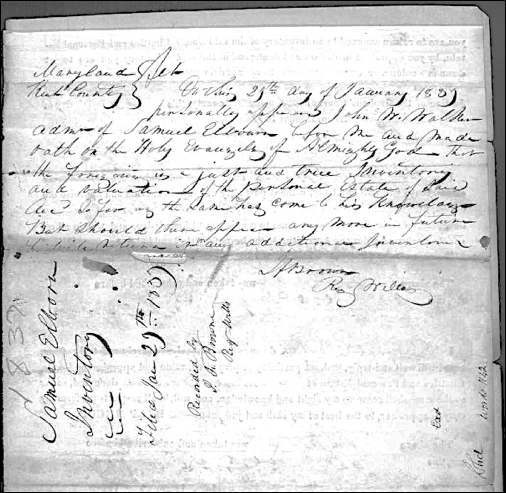 Maryland } Sct
Kent County }
On this 29th day of January 1839
personally appears John W. Walker
admr of Samuel Elbourn before me and made
oath on the Holy Evangely of Almighty God that
the foregoing is a just and true Inventory
and valuation of the personal Estate of said
decd so far as the same has come to his Knowledge
But should there appear any more in future
he will return in an additional Inventory
Brown
Reg Wills
1839
Samuel Elborn
Inventory
Filed Jan 29th 1839
Recorded by
Brown
Reg Wills